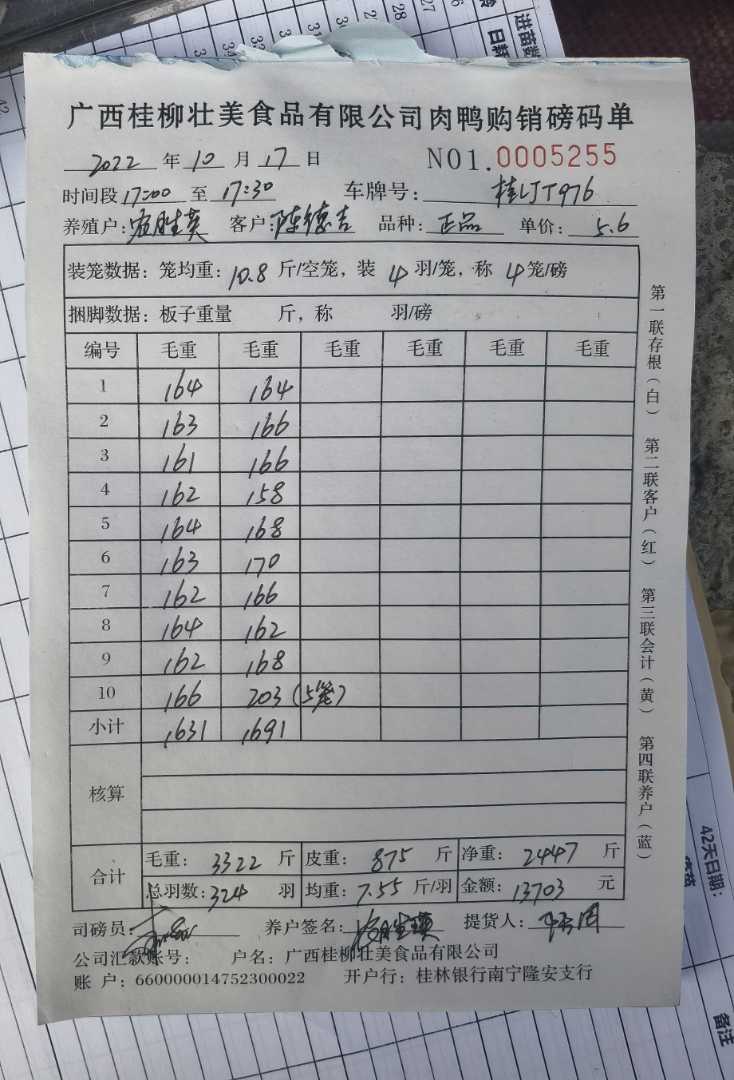 广西桂柳壮美食品有限公司肉鸭购销磅码单
2022 年 10 月 17 日 NO1.0005255
时间段 17:00 至 17:30 车牌号: 桂
养殖户: 客户: 陈德吉 品种: 正品 单价: 5.6
装笼数据: 笼均重: 10.8 斤/空笼, 装 4 羽/笼, 称 4 笼/磅
捆脚数据: 板子重量 斤, 称 羽/磅
编号 毛重 毛重 毛重 毛重 毛重 毛重
1 164 164
2 163 166
3 161 166
4 162 158
5 164 168
6 163 170
7 162 166
8 164 162
9 162 168
10 166 203 (5笼)
小计 1631 1691
核算
合计 毛重: 3322 斤 皮重: 875 斤 净重: 2447 斤
总羽数: 324 羽 均重: 7.55 斤/羽 金额: 13703 元
司磅员: 养户签名: 提货人:
公司汇款账号: 户名: 广西桂柳壮美食品有限公司
账户: 660000014752300022 开户行: 桂林银行南宁隆安支行
第一联存根(白) 第二联客户(红) 第三联会计(黄) 第四联养户(蓝)
进苗数
27
28
33
34
42天日期:
备注